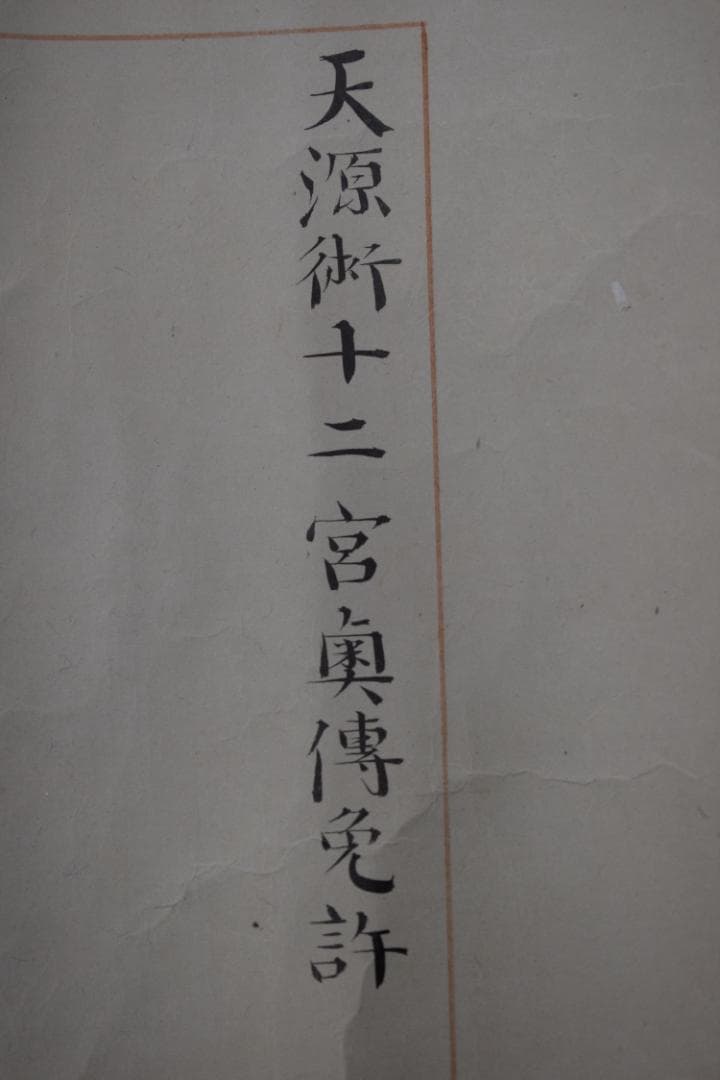 天源術十二宮奥傳免許